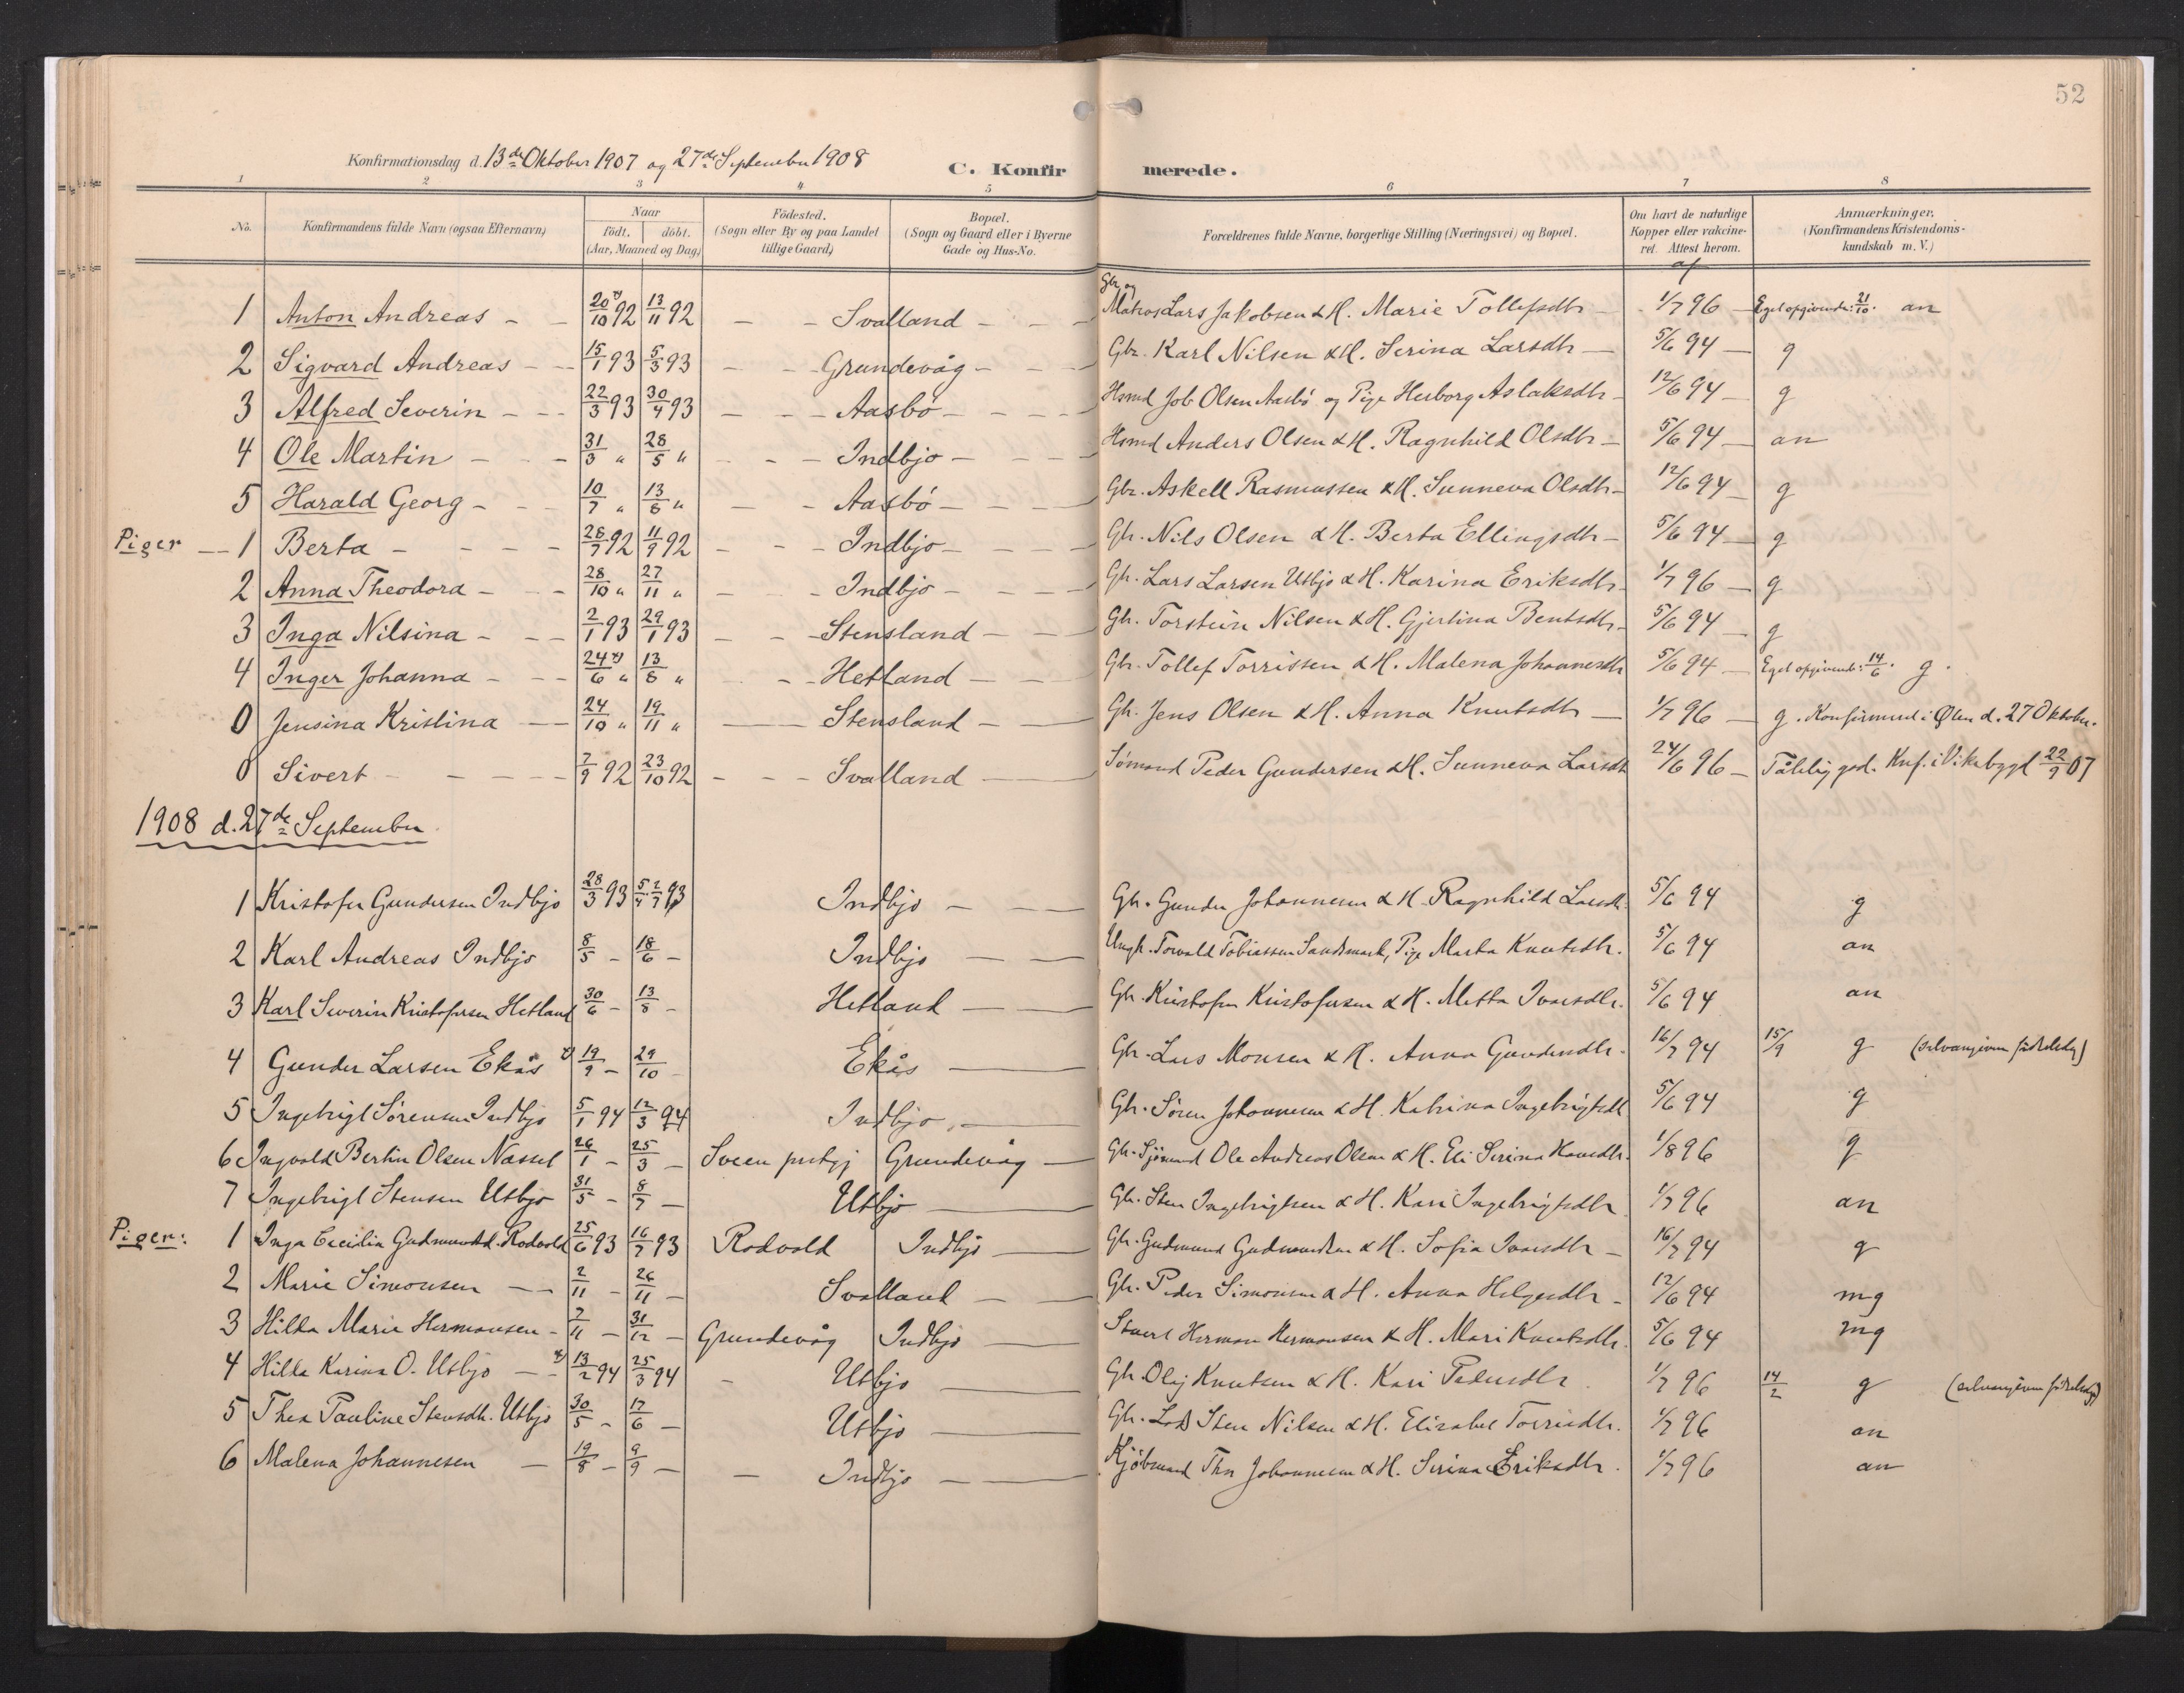 52
Konfirmationsdag d. 13de Oktober 1907 og 27de September 1908
C. Konfirmerede.
1 2 3 4 5 6 7 8
No. Konfirmandens fulde Navn (ogsaa Efternavn) Naar født. døbt. (Aar, Maaned og Dag) Födested. (Sogn eller By og paa Landet tillige Gaard) Bopæl. (Sogn og Gaard eller i Byerne Gade og Hus-No. Forældrenes fulde Navne, borgerlige Stilling (Næringsvei) og Bopæl. Om havt de naturlige Kopper eller vakcineret. Attest herom. Anmærkninger. (Konfirmandens Kristendomskundskab m. V.)
af
1 Anton Andreas - - 20/10 92 13/11 92 - - Svalland - - Gbr. og Matros Lars Jakobsen & H. Marie Tollefsdtr - 1/7 96 - Eget opgivende: 21/10. an
2 Sigvard Andreas - - 15/1 93 5/3 93 - - Grundevåg - - Gbr. Karl Nilsen & H. Serina Larsdtr - 5/6 94 - g
3 Alfred Severin - - 22/3 93 30/4 93 - - Aasbø - - Hsmd Job Olsen Aasbø og Pige Herborg Aslaksdtr - 12/6 94 - g
4 Ole Martin - - 31/3 " 28/5 " - - Indbjo - - Hsmd Anders Olsen & H. Ragnhild Olsdtr - 5/6 94 - an
5 Harald Georg - - 10/7 " 13/8 " - - Aasbø - - Gbr. Askell Rasmussen & H. Sunneva Olsdtr - 12/6 94 - g
Piger - 1 Berta - - - 28/7 92 11/9 92 - - Indbjo - - Gbr. Nils Olsen & H. Berta Ellingsdtr - 5/6 94 - g
2 Anna Theodora - - 28/10 " 27/11 " - - Indbjo - - Gbr. Lars Larsen Utbjo & H. Karina Eriksdtr - 1/7 96 - g
3 Inga Nilsina - - 2/1 93 29/1 93 - - Stensland - - Gbr. Torstein Nilsen & H. Gjertina Bentsdtr - 5/6 94 - g
4 Inger Johanna - - 24/6 " 13/8 " - - Hetland - - Gbr. Tollef Torrissen & H. Malena Johannesdtr 5/6 94 - Eget opgivende: 14/6. g.
0 Jensina Kristina - 24/10 " 19/11 " - Stensland - Gbr. Jens Olsen & H. Anna Knutsdtr - 1/7 96 - g. Konfirmered i Ølen d. 27 Oktober.
0 Sivert - - - 7/9 92 23/10 92 - - Svalland - Sømand Peder Gundersen & H. Sunneva Larsdtr 24/6 96 - Tålelig god. Knf. i Vikebygd 22/9 07
1908 d. 27de September
1 Kristofer Gundersen Indbjo 28/3 93 93 Indbjo - - Gbr. Gunder Johannesen & H. Ragnhild Larsdtr 5/6 94 g
2 Karl Andreas Indbjo 8/5 - 18/6 - Indbjo - - Ungk. Torvald Tobiassen Sandsmark, Pige Marta Knutsdtr. 5/6 94 an
3 Karl Severin Kristofersen Hetland 30/6 - 13/8 - Hetland - - Gbr. Kristofer Kristofersen & H. Metta Ivarsdtr. 5/6 94 an
4 Gunder Larsen Ekås 19/9 - 29/10 - Ekås - Gbr. Lars Monsen & H. Anna Gundersdtr. 16/7 94 15/9 g (selvangiven fødselsdag)
5 Ingebrigt Sørensen Indbjo 5/1 94 12/3 94 Indbjo - Gbr. Sören Johannesen & H. Katrina Ingebrigtsdtr 5/6 94 g
6 Ingvald Bertin Olsen Næssel 26/1 - 25/3 - Sveen prstgj Grundevåg - Gbr. Sjömand Ole Andreas Olsen & H. Eli Serina Hansdtr. 1/8 96 g
7 Ingebrigt Stensen Utbjo 31/5 - 8/7 - Utbjo - Gbr. Sten Ingebrigtsen & H. Kari Ingebrigtsdtr 1/7 96 an
Piger: 1 Inga Cecilia Gudmundsd. Rodvold 25/6 93 16/7 93 Rodvold Indbjo - Gbr. Gudmund Gudmundsen & H. Sofia Ivarsdtr - 16/7 94 g
2 Marie Simonsen - - 2/11 - 26/11 - Svalland - Gbr. Peder Simonsen & H. Anna Helgesdtr - 12/6 94 mg
3 Hilda Marie Hermansen - 7/11 - 31/12 - Grundevåg Indbjo - Herman Hermansen & H. Mari Knutsdtr. 5/6 94 mg
4 Hilda Karina O. Utbjo - 13/2 94 25/3 94 - Utbjo - Gbr. Olaj Knutsen & H. Kari Pedersdtr 1/7 96 14/2 g (selvangiven fødselsdag)
5 Thea Pauline Stensdtr. Utbjo 30/5 - 17/6 - Utbjo - Gbr. Lods Sten Nilsen & H. Elisabet Torrisdtr. 1/7 96 an
6 Malena Johannesen - 19/8 - 9/9 - - Indbjo - Kjöbmand Thor Johannesen & H. Serina Eriksdtr. 1/7 96 an